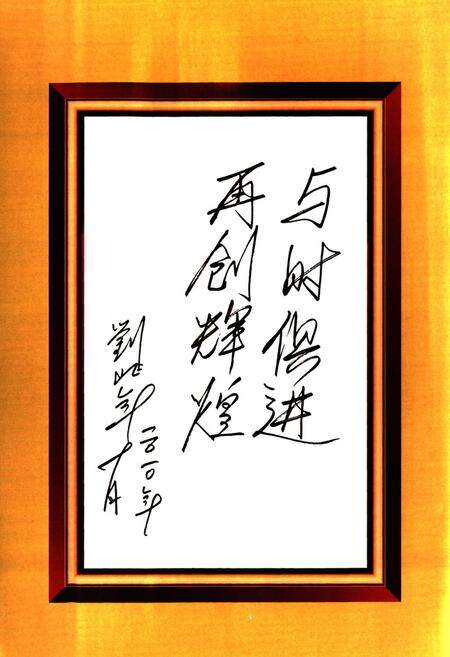 与时俱进
再创辉煌
劉

二〇一〇年
十月